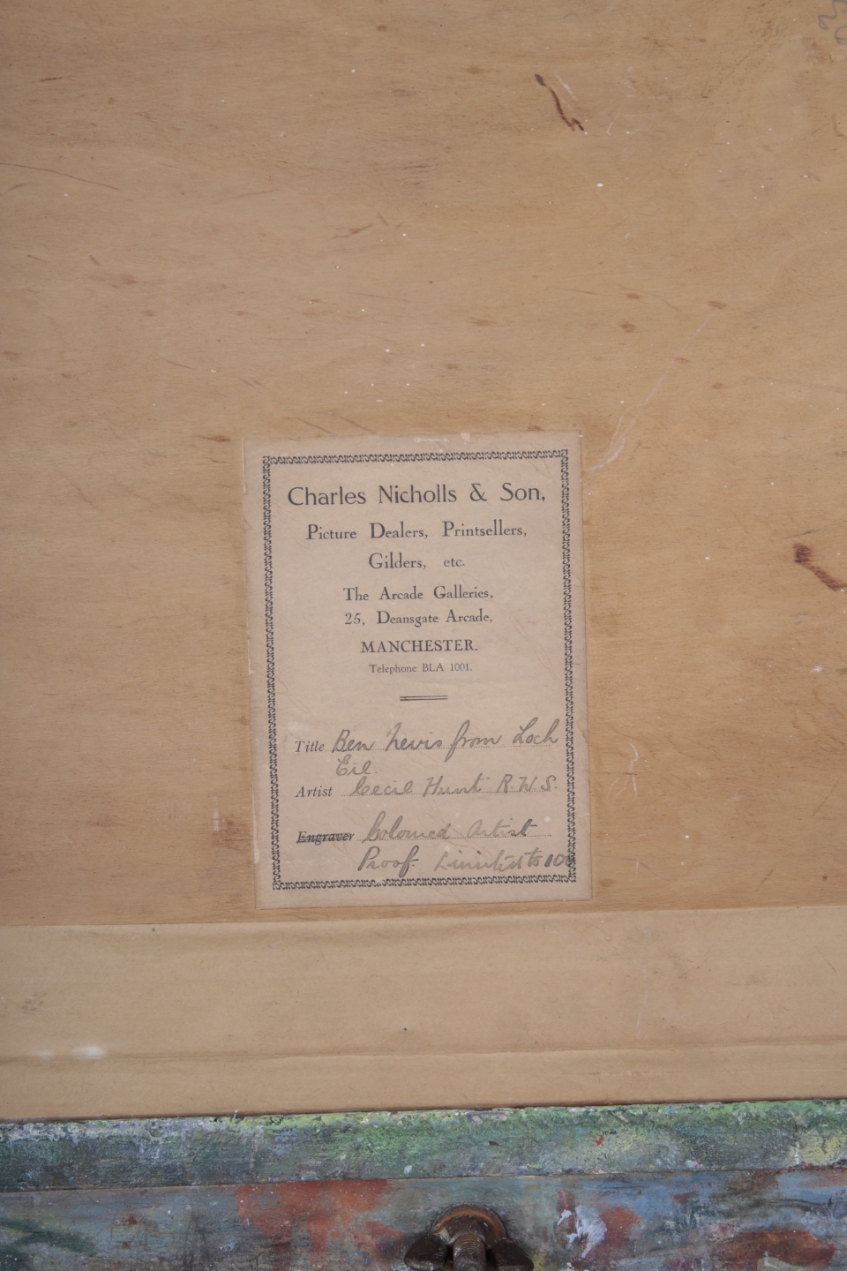 Charles Nicholls & Son,
Picture Dealers, Printsellers,
Gilders, etc.
The Arcade Galleries,
25, Deansgate Arcade,
MANCHESTER.
Telephone BLA 1001.
Title Ben Nevis from Loch
Eil.
Artist Cecil Hunt R.W.S.
Engraver Coloured Artist
Proof. Limited to 100